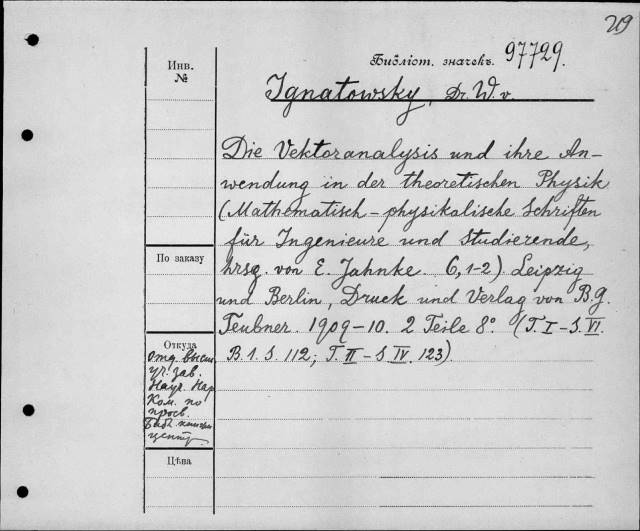 219
Библіот. значекъ. 97729.
Инв.
№
Ignatowsky, Dr. W. v.
Die Vektoranalysis und ihre An-
wendung in der theoretischen Physik
(Mathematisch-physikalische Schriften
für Ingenieure und Studierende,
hrsg. von E. Jahnke. 6,1-2). Leipzig
und Berlin, Druck und Verlag von B.G.
Teubner. 1909-10. 2 Teile 8° (T. I - S. VI.
B. 1. S. 112; T. II - S IV. 123).
По заказу
Откуда
отд. высш.
уч. зав.
Науч. Нар
Ком. по
просв.
центр.
Цѣна